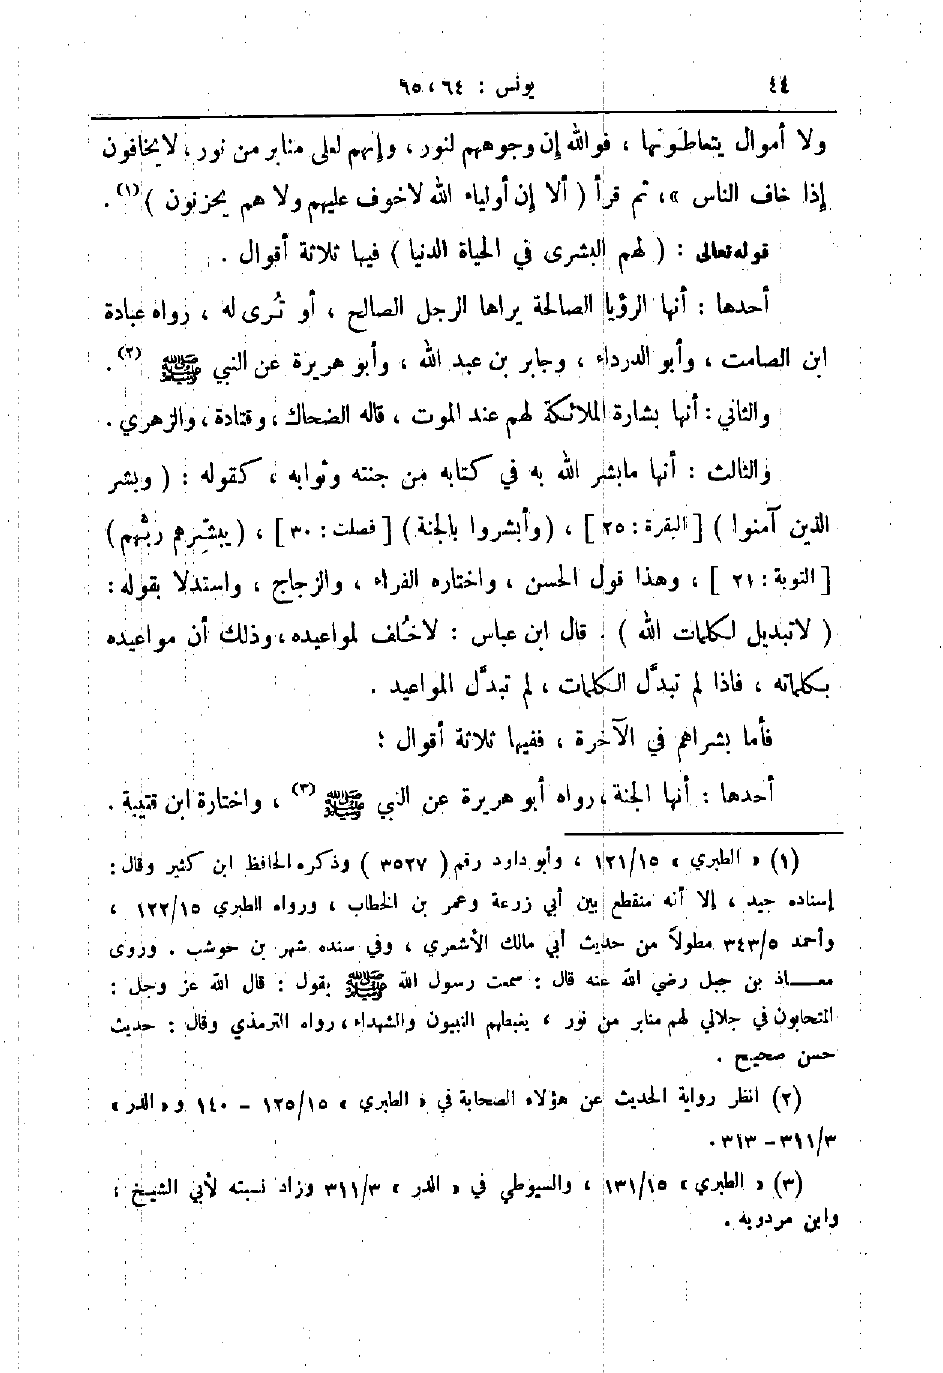 ٤٤ يونس : ٦٤ ، ٦٥
ولا أموال يتعاطَونها ، فوالله إن وجوههم لنور ، وإنهم لعلى منابر من نور ، لايخافون
إذا خاف الناس » ، ثم قرأ ( ألا إن أولياء الله لاخوف عليهم ولا هم يحزنون ) (١) .
قوله تعالى : ( لهم البشرى في الحياة الدنيا ) فيها ثلاثة أقوال .
أحدها : أنها الرؤيا الصالحة يراها الرجل الصالح ، أو تُرى له ، رواه عبادة
ابن الصامت ، وأبو الدرداء ، وجابر بن عبد الله ، وأبو هريرة عن النبي ﷺ (٢) .
والثاني : أنها بشارة الملائكة لهم عند الموت ، قاله الضحاك ، وقتادة ، والزهري .
والثالث : أنها مابشر الله به في كتابه من جنته وثوابه ، كقوله : ( وبشر
الذين آمنوا ) [ البقرة : ٢٥ ] ، (وأبشروا بالجنة ) [ فصلت : ٣٠ ] ، (يبشّرهم ربُّهم)
[ التوبة : ٢١ ] ، وهذا قول الحسن ، واختاره الفراء ، والزجاج ، واستدلا بقوله :
( لاتبديل لكلمات الله ) . قال ابن عباس : لاخُلف لمواعيده ، وذلك أن مواعيده
بكلماته ، فاذا لم تبدَّل الكلمات ، لم تبدَّل المواعيد .
فأما بشراهم في الآخرة ، ففيها ثلاثة أقوال :
أحدها : أنها الجنة ، رواه أبو هريرة عن النبي ﷺ (٣) ، واختارة ابن قتيبة .
(١) « الطبري » ١٢١/١٥ ، وأبو داود رقم ( ٣٥٢٧ ) وذكره الحافظ ابن كثير وقال :
إسناده جيد ، إلا أنه منقطع بين أبي زرعة وعمر بن الخطاب ، ورواه الطبري ١٢٢/١٥ ،
وأحمد ٣٤٣/٥ مطولاً من حديث أبي مالك الأشعري ، وفي سنده شهر بن حوشب . وروى
معـــاذ بن جبل رضي الله عنه قال : سمعت رسول الله ﷺ يقول : قال الله عز وجل :
المتحابون في جلالي لهم منابر من نور ، يغبطهم النبيون والشهداء ، رواه الترمذي وقال : حديث
حسن صحيح .
(٢) انظر رواية الحديث عن هؤلاء الصحابة في « الطبري » ١٢٥/١٥ – ١٤٠ و« الدر »
٣١١/٣ – ٣١٣ .
(٣) « الطبري » ١٣١/١٥ ، والسيوطي في « الدر » ٣١١/٣ وزاد نسبته لأبي الشيخ ،
وابن مردويه .